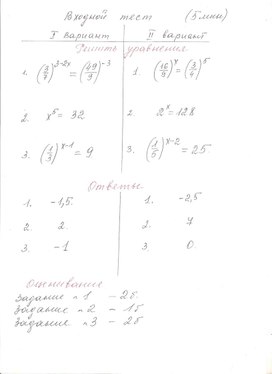 Входной тест (5 мин)
I вариант II вариант
Решить уравнения
1. (3/7)^(3-2x) = (49/9)^(-3) 1 (16/9)^x = (3/4)^5
2. x^5 = 32 2. 2^x = 128
3. (1/3)^(x-1) = 9 3. (1/5)^(x-2) = 25
Ответы
1. -1,5. 1. -2,5
2. 2. 2. 7
3. -1 3 0
Оценивание
Задание n 1 - 2б.
Задание n 2 - 1б
Задание n 3 - 2б